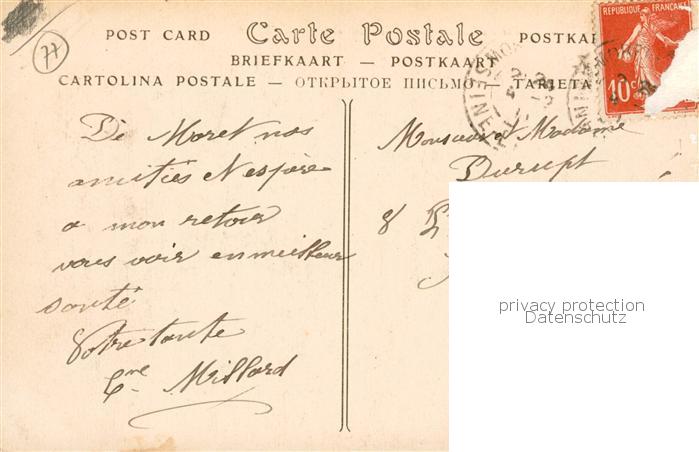 77
POST CARD Carte Postale POSTKA
BRIEFKAART — POSTKAART
CARTOLINA POSTALE — ОТКРЫТОЕ ПИСЬМО — TARJETA
REPUBLIQUE FRANÇAISE
10c
De Moret nos
amitiés N espère
a mon retour
vous voir en meilleur
santé
Votre tante
Millard
Monsieur Madame
Durupt
8
privacy protection
Datenschutz